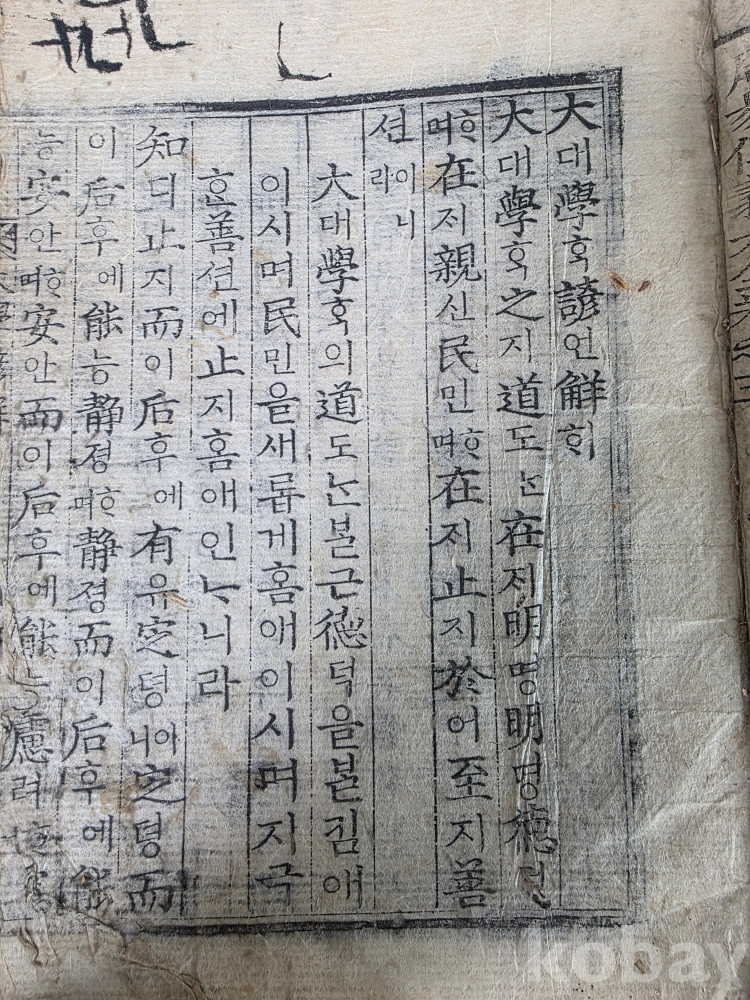 大대學ᄒᆞᆨ諺언觧ᄒᆡ
大대學ᄒᆞᆨ之지道도ᄂᆞᆫ在ᄌᆡ明명明명德덕
ᄒᆞ며在ᄌᆡ親신民민ᄒᆞ며在ᄌᆡ止지於어至지善
션이니라
大대學ᄒᆞᆨ의道도ᄂᆞᆫᄇᆞᆯ근德덕을ᄇᆞᆯ킴애
이시며民민을새롭게홈애이시며지극
ᄒᆞᆫ善션에止지홈애인ᄂᆞ니라
知디止지而이后후에有유定뎡이니定뎡而
이后후에能능静졍ᄒᆞ며静졍而이后후에能
능安안ᄒᆞ며安안而이后후에能능慮려
kobay